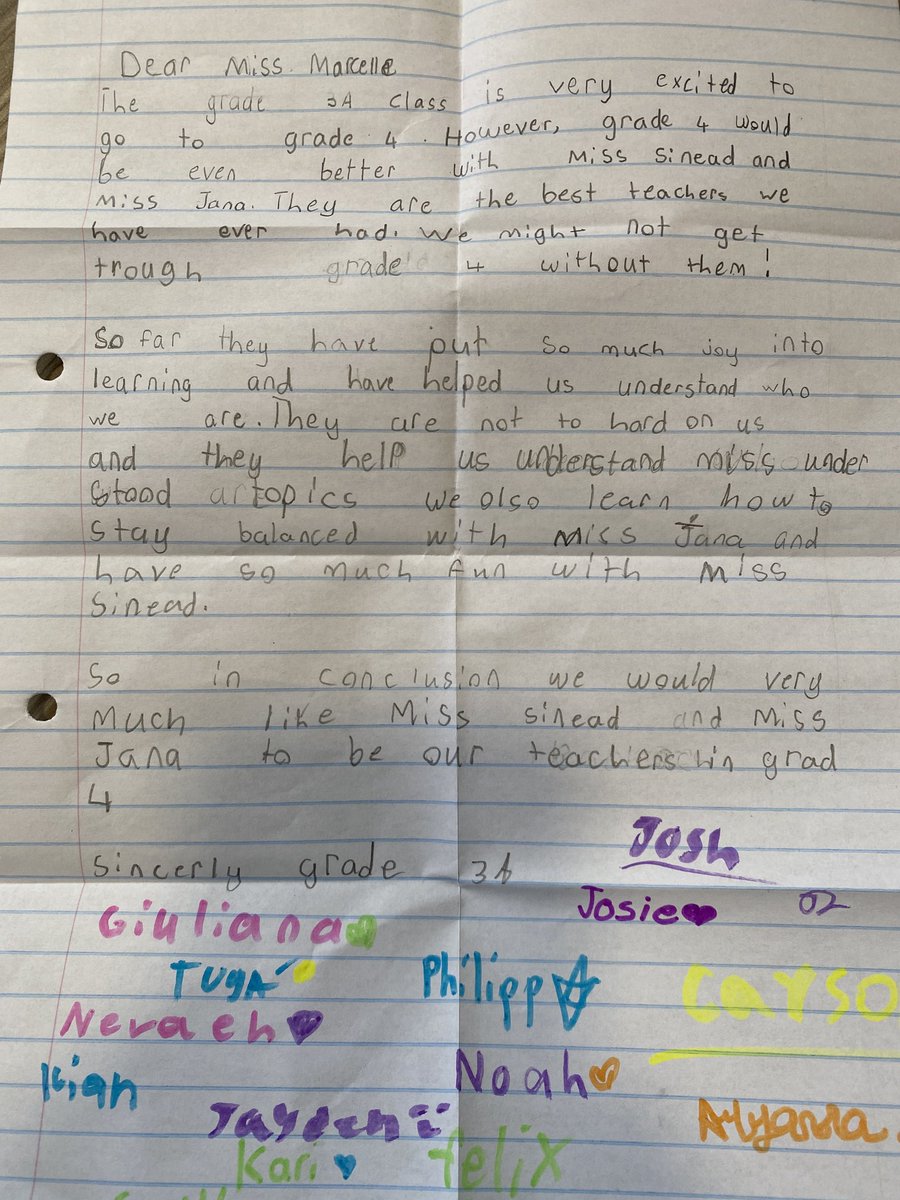 Dear Miss. Marcelle
The grade 3A class is very excited to
go to grade 4. However, grade 4 would
be even better with Miss Sinead and
Miss Jana. They are the best teachers we
have ever had. We might not get
trough grade 4 without them!
So far they have put so much joy into
learning and have helped us understand who
we are. They are not to hard on us
and they help us understand miss under
stood topics we also learn how to
stay balanced with Miss Jana and
have so much fun with Miss
Sinead.
So in conclusion we would very
much like Miss Sinead and Miss
Jana to be our teachers in grad
4
Sincerly grade 3A
Josh
Giuliana Josie 02
Tuga Philipp Carso
Nevaeh
Kian Noah
Jayden Alyanna
Kari felix